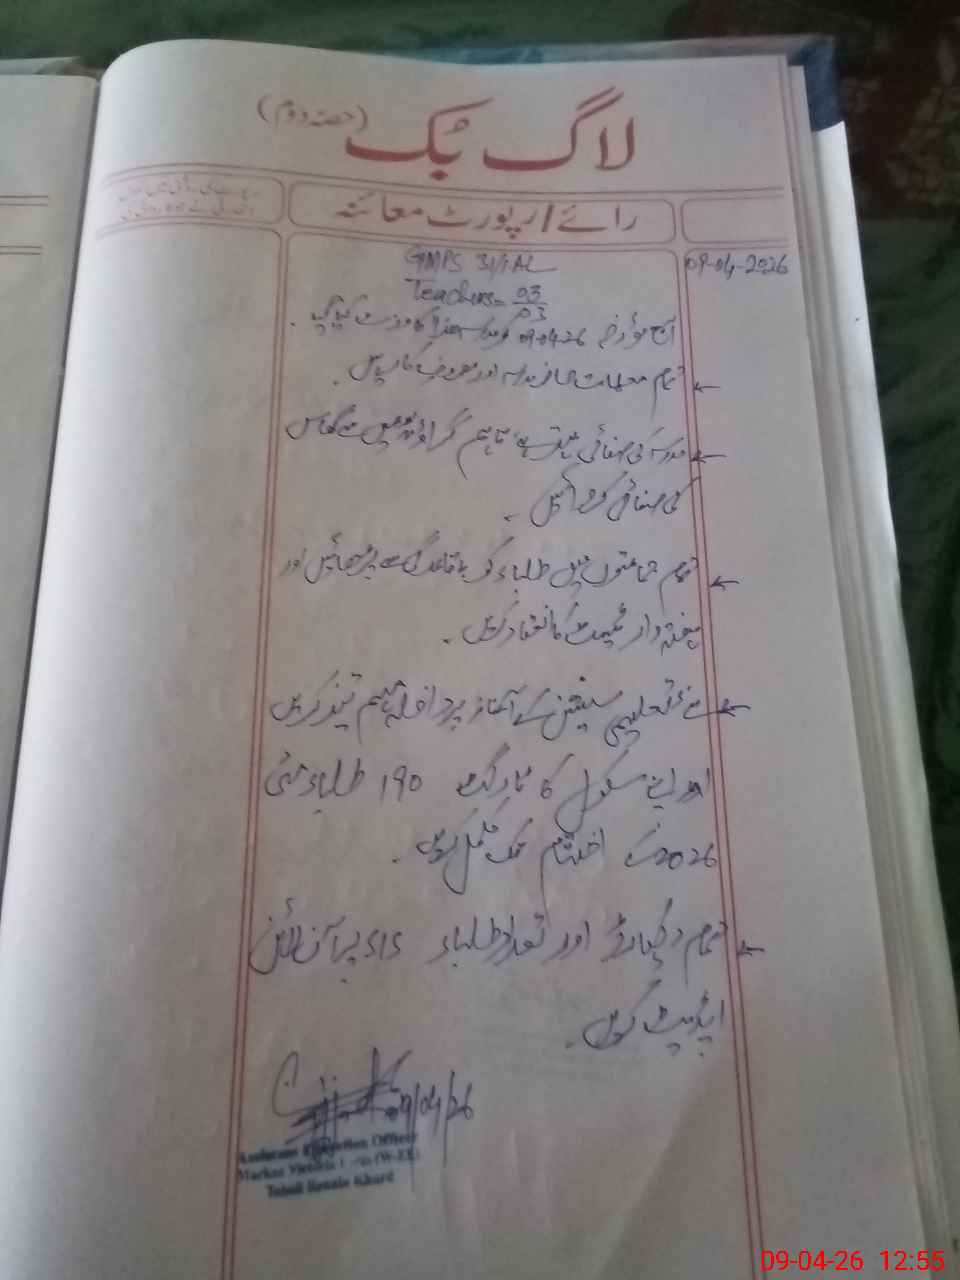 لاگ بک (حصہ دوم)
رائے / رپورٹ معائنہ
09-04-2026
GMPS 31/1.AL
Teachers = 03/03
آج مؤرخہ 09-04-26 کو مدرسہ ہذا کا وزٹ کیا گیا۔
← تمام معلمات حاضر اور مصروف کار ہیں۔
← مدرسہ کی صفائی تاہم گراؤنڈ میں سے گھاس
کی صفائی کروائیں۔
← تمام جماعتوں میں طلباء کو باقاعدگی سے پڑھائیں اور
ہفتہ وار ٹیسٹ کا انعقاد کریں۔
← نئے تعلیمی سیشن کے آغاز پر داخلہ مہم تیز کریں
اور اپنے سکول کا ٹارگٹ 190 طلباء مئی
2026 کے اختتام تک مکمل کریں۔
← تمام ریکارڈ اور تعداد طلباء SIS پر آن لائن
اپڈیٹ کریں۔
09/04/26
Assistant Education Officer
Markaz Victoria (W-EE)
Tehsil Renala Khurd
09-04-26 12:55